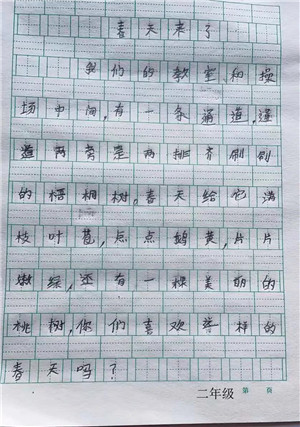 春天来了
我们的教室和操
场中间,有一条通道,通
道两旁是两排齐刷刷
的梧桐树,春天给它满
枝叶苞,点点鹅黄,片片
嫩绿,还有一棵美丽的
桃树,你们喜欢这样的
春天吗?
二年级 第 页